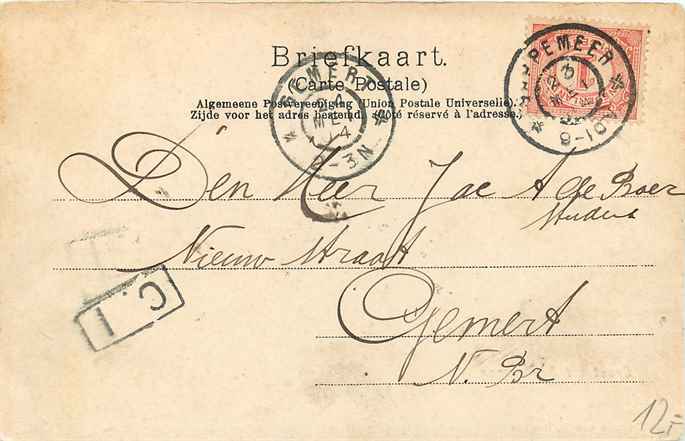 Briefkaart.
(Carte Postale)
Algemeene Postvereeniging (Union Postale Universelle).
Zijde voor het adres bestemd. (Côté réservé à l'adresse.)
GEMERT
24
MEI
04
2-3N
PEMEER
Den Heer Jac A de Boer
Student
Nieuw straat
Gemert
N. Br
C.I
12,-